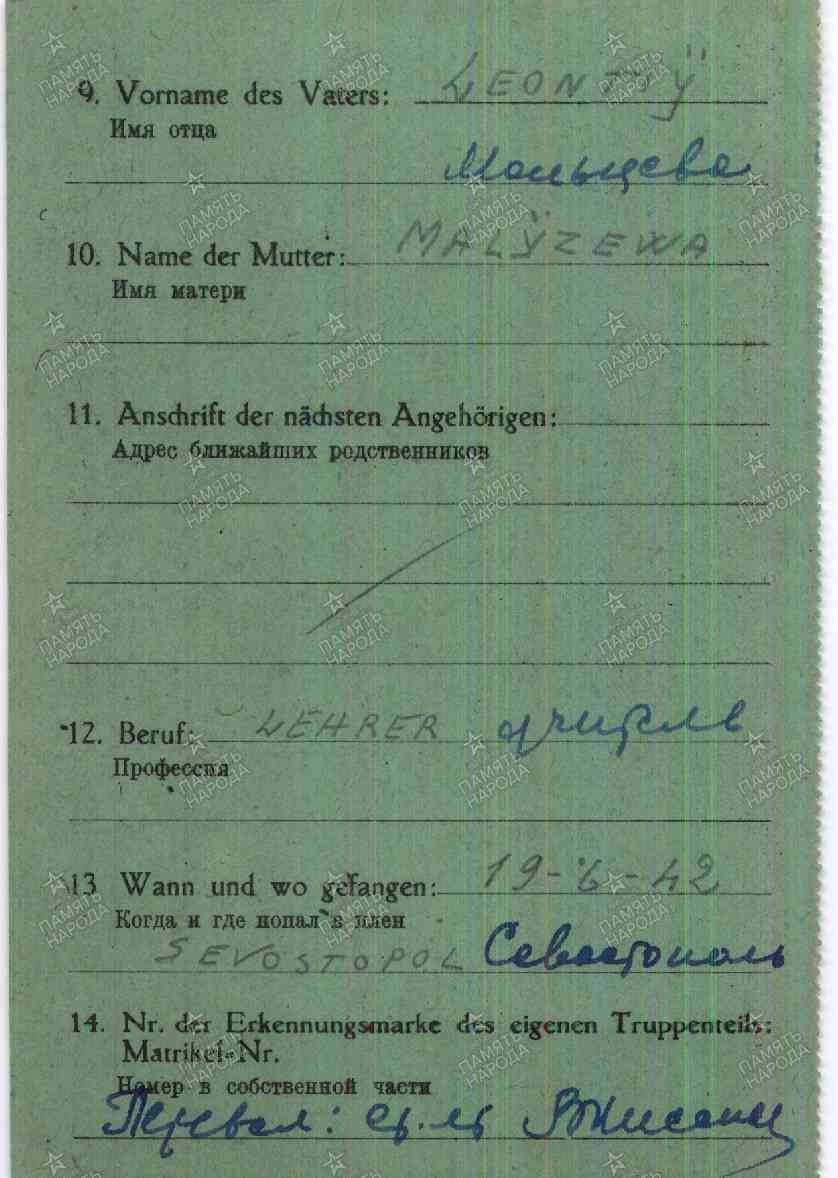 9. Vorname des Vaters: LEONTYŸ
Имя отца
Мальцева
10. Name der Mutter: MALŸZEWA
Имя матери
11. Anschrift der nächsten Angehörigen:
Адрес ближайших родственников
12. Beruf: LEHRER учитель
Профессия
13 Wann und wo gefangen: 19-6-42
Когда и где попал в плен
SEVOSTOPOL Севастополь
14. Nr. der Erkennungsmarke des eigenen Truppenteils:
Matrikel-Nr.
Номер в собственной части
Перевел: